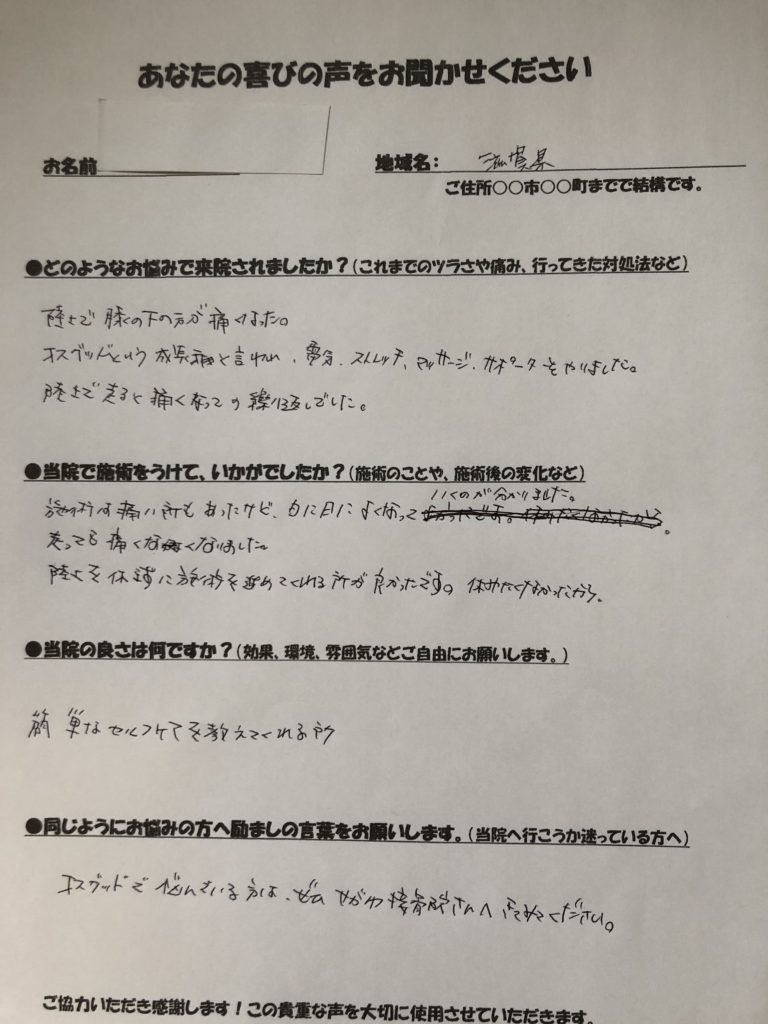 あなたの喜びの声をお聞かせください
お名前
地域名: 滋賀県
ご住所○○市○○町までで結構です。
●どのようなお悩みで来院されましたか?(これまでのツラさや痛み、行ってきた対処法など)
陸上で膝の下の方が痛くなった。
オスグッドという成長痛と言われ、電気、ストレッチ、マッサージ、サポーターをやりました。
陸上で走ると痛くなっての繰り返しでした。
●当院で施術をうけて、いかがでしたか?(施術のことや、施術後の変化など)
いくのが分かりました。
施術は痛い所もあったけど、日に日によくなって
走っても痛くなくなりました。
陸上を休まずに施術を進めてくれる所が良かったです。休みたくなかったから。
●当院の良さは何ですか?(効果、環境、雰囲気などご自由にお願いします。)
簡単なセルフケアを教えてくれる所
●同じようにお悩みの方へ励ましの言葉をお願いします。(当院へ行こうか迷っている方へ)
オスグッドで悩んでいる方は、ぜひ せがわ接骨院さんへ きてみてください。
ご協力いただき感謝します!この貴重な声を大切に使用させていただきます。